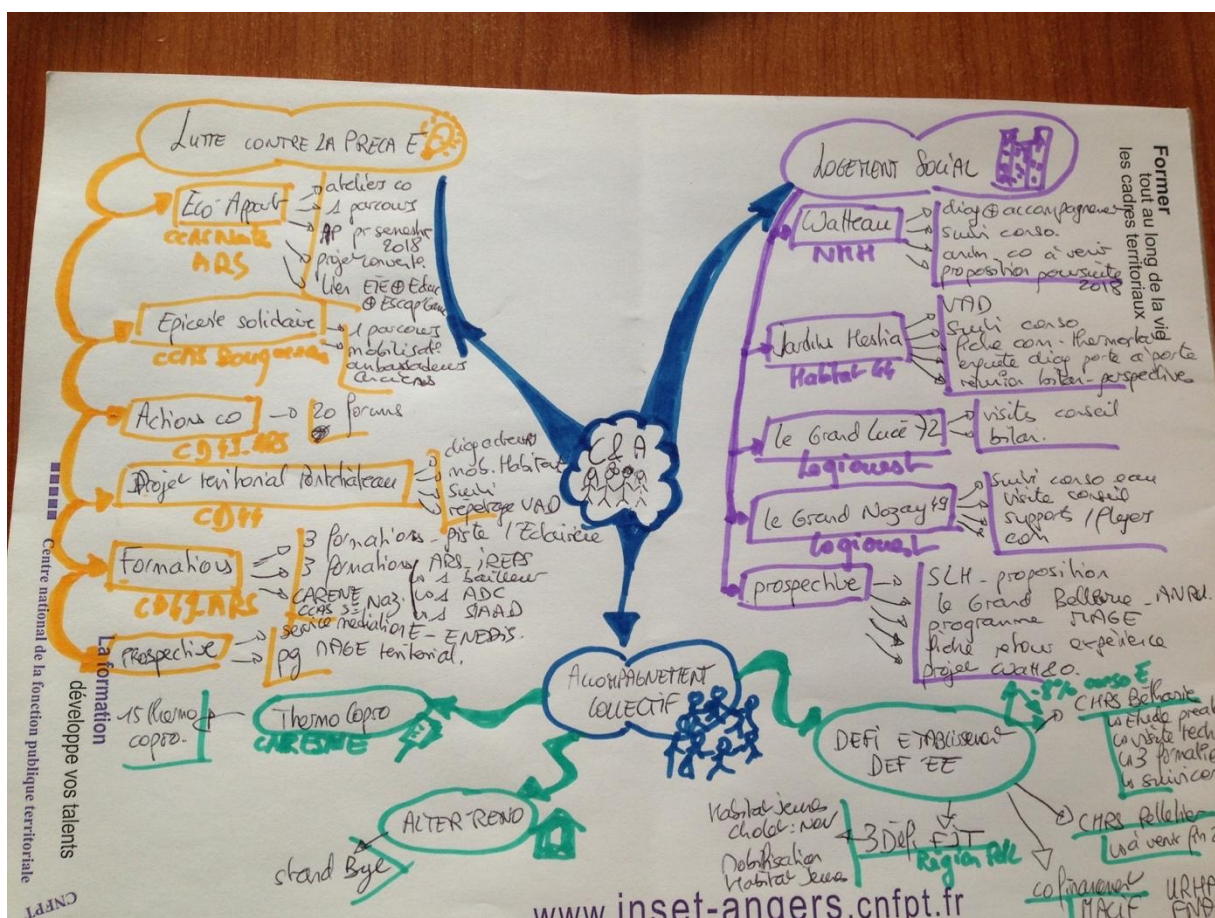 LUTTE CONTRE LA PRECA E
Eco-Appart
CCAS Nantes
ARS
ateliers co
1 parcours
1er semestre
2018
projet
lien ETE ⊕ Educ
⊕ Escap Game
Epicerie solidaire
CCAS
1 parcours
mobilisat°
ambassadeurs
Actions co
20 forums
Projet territorial Pontchateau
CD44
diag acteurs
mob. Habitants
suivi
repérage VAD
Formations
CD49-ARS
3 formations - piste / Eclaircie
3 formations
ARS - IREPS
↳ 1 bailleur
↳ 1 ADC
↳ 1 SAAD
CARENE
CCAS St Naz.
prospective
service médiation E - ENEDIS.
pg MAGE territorial.
C&A
LOGEMENT SOCIAL
Watteau
NMH
diag ⊕ accompagnement
suivi conso.
anim. co à venir
proposition poursuite
2018
Jardins Hestia
Habitat 44
VAD
suivi conso
fiche com - thermostat
enquête diag porte à porte
réunion bilan - perspectives
Le Grand Lucé 72
Logiouest
visites conseil
bilan.
Le Grand Nozay 49
Logiouest
suivi conso eau
visite conseil
supports / flyers
com
prospective
SLH - proposition
Le Grand Bellevue - ANRU.
programme MAGE
fiche retour expérience
projet
ACCOMPAGNEMENT
COLLECTIF
Thermo Copro
15 thermo
copro.
ALTER-RENO
stand Bye
DEFI ETABLISSEMENT
DEF'EE
-8% conso E
CHRS Béthanie
↳ Etude
↳ visite tech
↳ 3 formati
↳ suivi con
CHRS Pelletier
↳ à venir fin 2
3 Défi FJT
Région PdL
Habitat Jeunes
Cholet: Nov
Mobilisation
Habitat Jeunes
cofinancement
MACIF
URHA
Former
tout au long de la vie
les cadres territoriaux
La formation
développe vos talents
Centre national de la fonction publique territoriale
CNFPT
www.inset-angers.cnfpt.fr